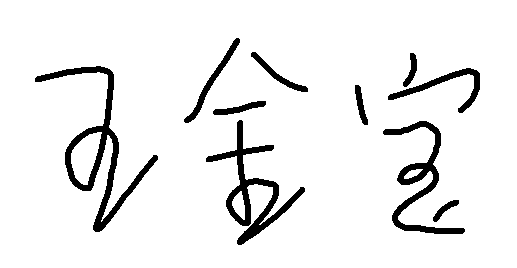 王金宝